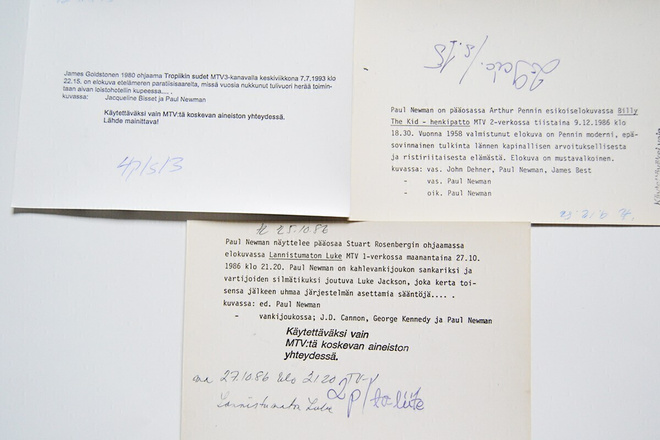 James Goldstonen 1980 ohjaama Tropiikin sudet MTV3-kanavalla keskiviikkona 7.7.1993 klo
22.15. on elokuva etelämeren paratiisisaarelta, missä vuosia nukkunut tulivuori herää toimin-
taan aivan loistohotellin kupeessa,....
kuvassa: Jacqueline Bisset ja Paul Newman
Käytettäväksi vain MTV:tä koskevan aineiston yhteydessä.
Lähde mainittava!
4p/s/3
Paul Newman on pääosassa Arthur Pennin esikoiselokuvassa Billy
The Kid - henkipatto MTV 2-verkossa tiistaina 9.12.1986 klo
18.30. Vuonna 1958 valmistunut elokuva on Pennin moderni, epä-
sovinnainen tulkinta lännen kapinallisen arvoituksellisesta
ja ristiriitaisesta elämästä. Elokuva on mustavalkoinen.
kuvassa: vas. John Dehner, Paul Newman, James Best
- vas. Paul Newman
- oik. Paul Newman
25.10.86
Paul Newman näyttelee pääosaa Stuart Rosenbergin ohjaamassa
elokuvassa Lannistumaton Luke MTV 1-verkossa maanantaina 27.10.
1986 klo 21.20. Paul Newman on kahlevankijoukon sankariksi ja
vartijoiden silmätikuksi joutuva Luke Jackson, joka kerta toi-
sensa jälkeen uhmaa järjestelmän asettamia sääntöjä.... .
kuvassa: ed. Paul Newman
- vankijoukossa; J.D. Cannon, George Kennedy ja Paul Newman
Käytettäväksi vain
MTV:tä koskevan aineiston
yhteydessä.
ma 27.10.86 klo 21 20 TV-1
Lannistumaton Luke 2p/taliite